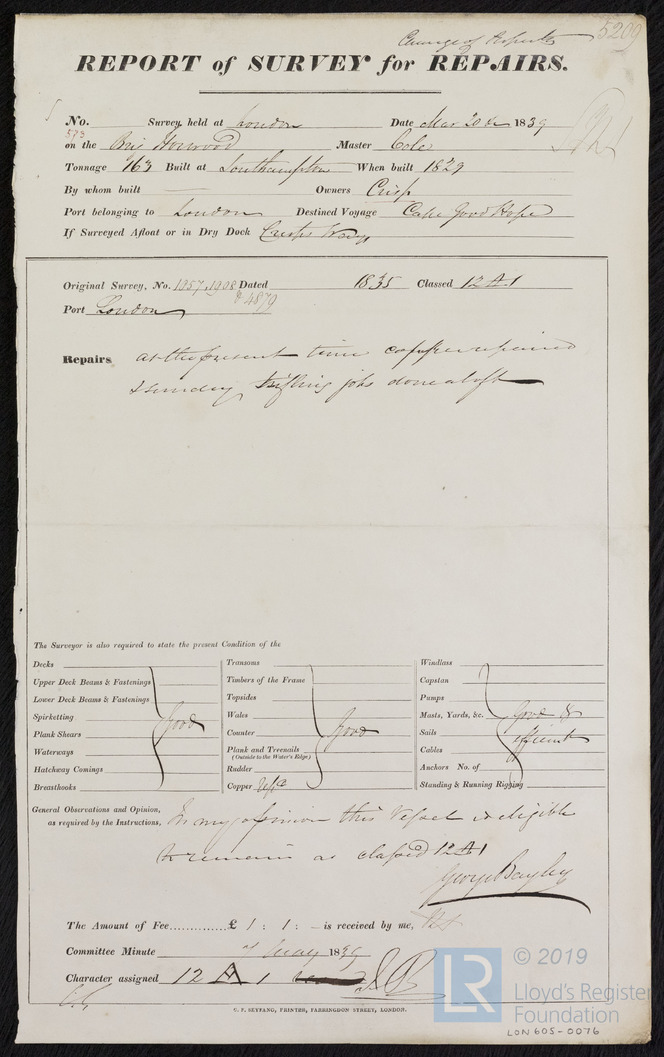 Change of Property 5209
REPORT of SURVEY for REPAIRS.
No. Survey held at London Date Mar 20th 1839
573
on the Brig Horwood Master Cole
Tonnage 163 Built at Southampton When built 1829
By whom built Owners Crisp
Port belonging to London Destined Voyage Cape Good Hope
If Surveyed Afloat or in Dry Dock
Original Survey, No. 1957, 1908 Dated 1835 Classed 12 A.1
& 4879
Port London
Repairs at the present time copper repaired
& sundry trifling jobs done aloft
The Surveyor is also required to state the present Condition of the
Decks
Upper Deck Beams & Fastenings
Lower Deck Beams & Fastenings
Spirketting
Plank Shears
Waterways
Hatchway Comings
Breasthooks
Good
Transoms
Timbers of the Frame
Topsides
Wales
Counter
Plank and Treenails
(Outside to the Water's Edge)
Rudder
Copper
Good
Windlass
Capstan
Pumps
Masts, Yards, &c.
Sails
Cables
Anchors No. of
Standing & Running Rigging
Good &
efficient
General Observations and Opinion,
as required by the Instructions,
In my opinion this Vessel is eligible
to remain as classed 12 A1
George Bayley
The Amount of Fee..............£ 1 : 1 : – is received by me,
Committee Minute 7 May 1839
Character assigned 12 A 1
C. F. SEYFANG, PRINTER, FARRINGDON STREET, LONDON.
LR
© 2019
Lloyd's Register
Foundation
LON605-0076